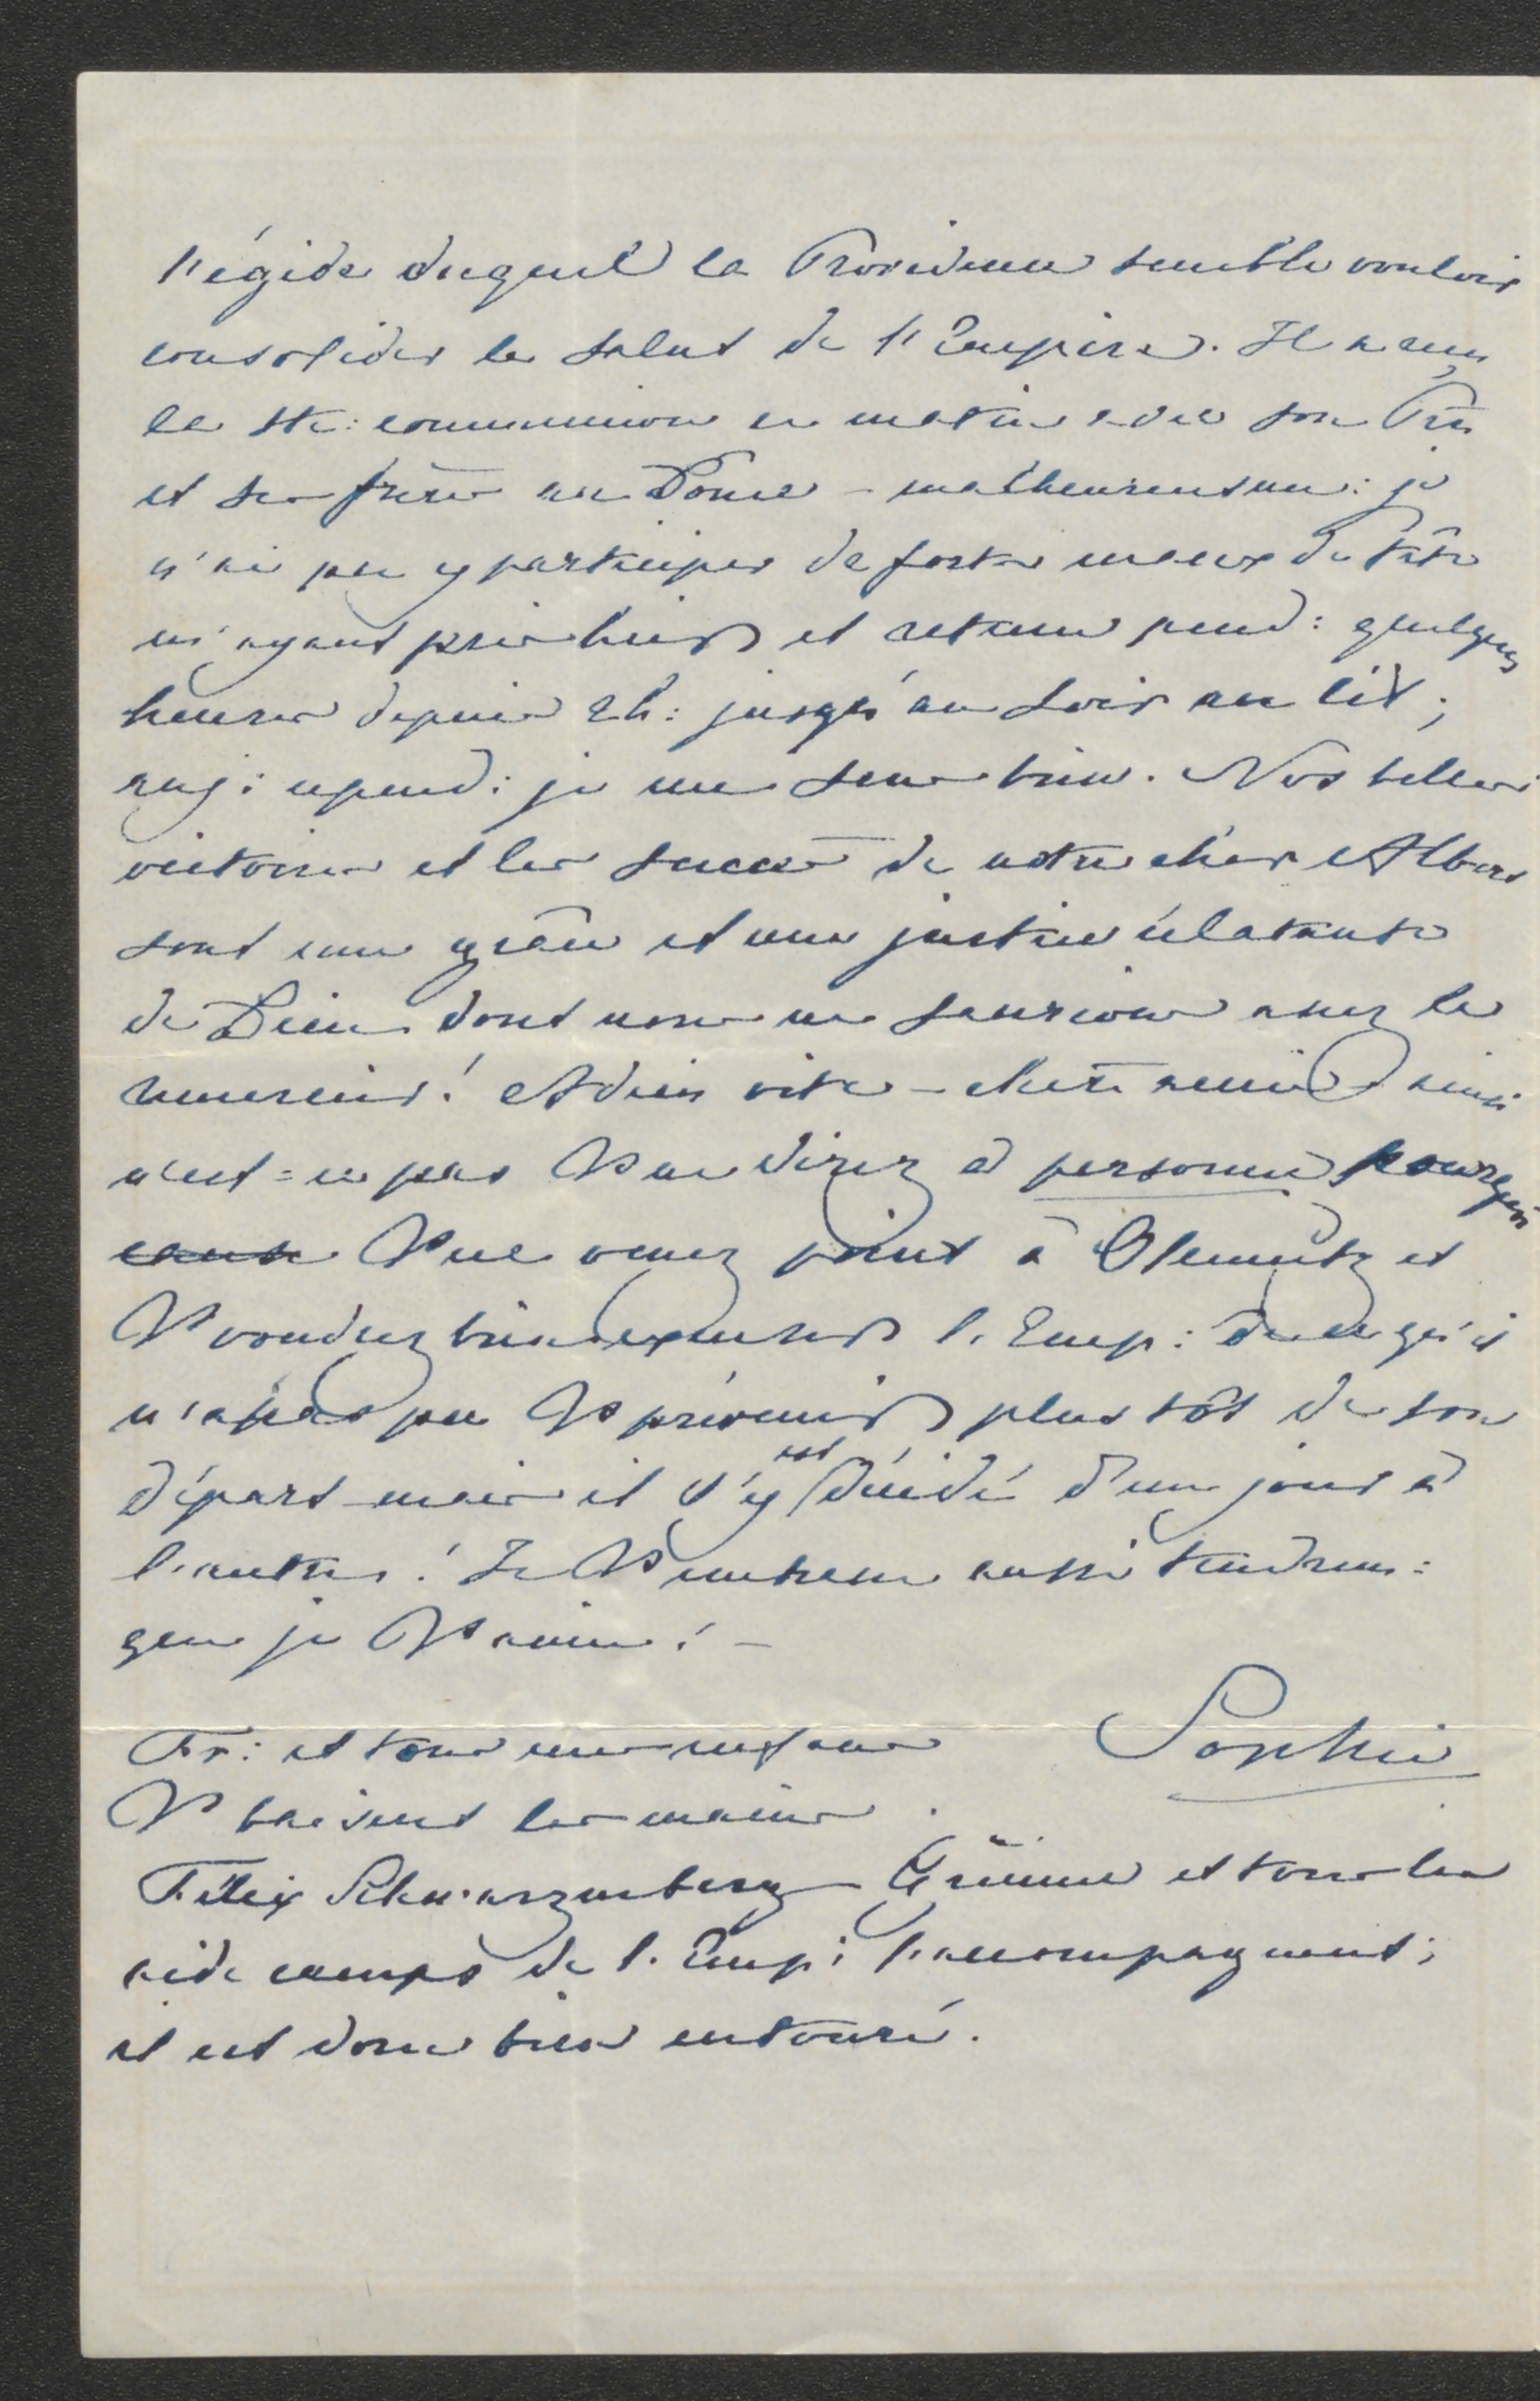 l'égide duquel la Providence semble vouloir
consolider le salut de l'Empire. Il a reçu
la Ste: communion ce matin avec son Père
et ses frères au Dome – malheureusem: je
n'ai pu y participer de forts maux de tête
m'ayant pris hier et retenue pend: quelques
heures depuis 2h: jusqu'au soir au lit;
auj: cepend: je me sens bien. Nos belles
victoires et les succès de notre cher Albert
sont une grâce et une justice éclatante
de Dieu dont nous ne saurions assez le
remercier! Adieu vite – chère amie ainsi
n'est=ce pas V ne direz à personne pourquoi
V ne venez point à Olemutz et
V voudrez bien excuser l'Emp: de ce qu'il
n'a pas pu V prévenir plus tôt de son
départ mais il s'y est décidé d'un jour à
l'autre! Je V embrasse aussi tendrem:
que je V aime! –
Sophie
Fr: et tous mes enfans
V baisent les mains.
Félix Schwarzenberg Grünne et tous les
aide camps de l'Emp: l'accompagnent;
il est donc bien entouré.